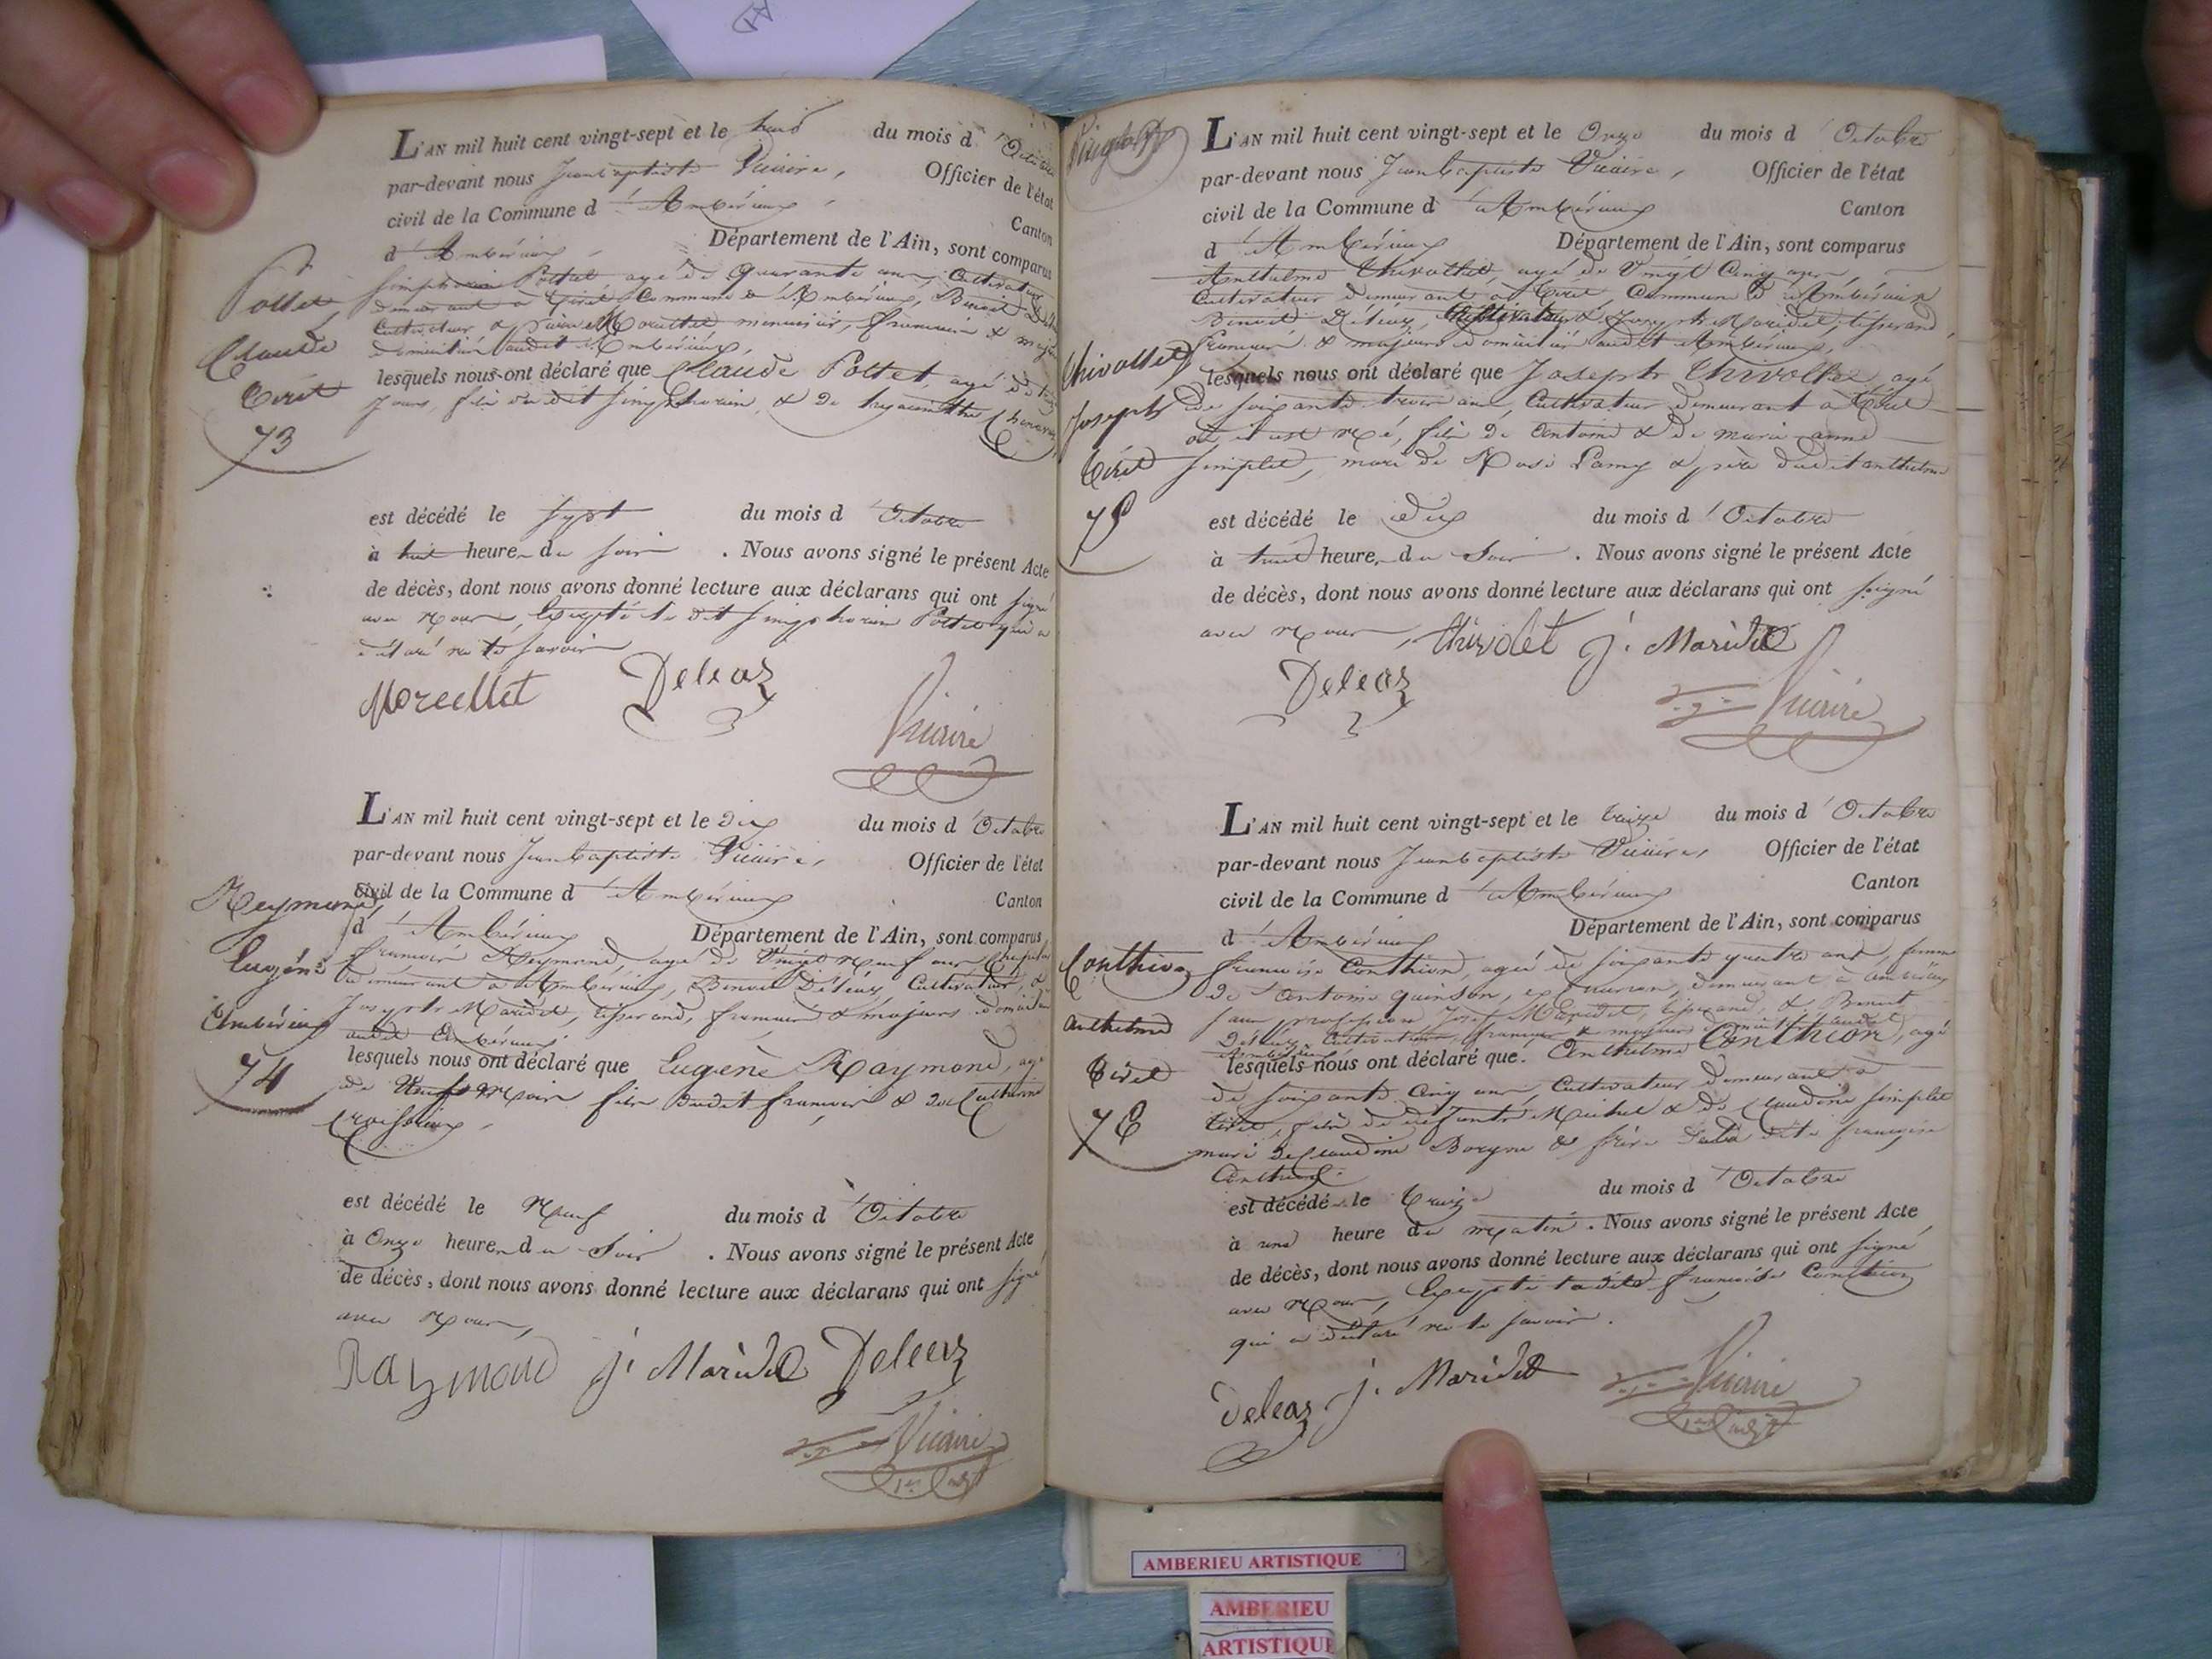 L'AN mil huit cent vingt-sept et le huit du mois d'Octobre
par-devant nous Jean baptiste Vicaire, Officier de l'état
civil de la Commune d'Ambérieux, Canton
d'Ambérieux Département de l'Ain, sont comparus
Pottet
Claude
Tiret
73
Simphorien Pottet agé de quarante ans, Cultivateur
demeurant a Tiret Commune d'Ambérieux, Benoit
Cultivateur & Morcellet menuisier, francais & majeurs
domiciliés audit Ambérieux,
lesquels nous ont déclaré que Claude Pottet, agé de
jours, fils du dit Simphorien & de hyacinthe
est décédé le sept du mois d'Octobre
à huit heures du soir . Nous avons signé le présent Acte
de décès, dont nous avons donné lecture aux déclarans qui ont signé
avec nous, Excepté le dit Simphorien Pottet qui a
déclaré ne le savoir
Morcellet Deleaz
Vicaire
L'AN mil huit cent vingt-sept et le dix du mois d'Octobre
par-devant nous Jean baptiste Vicaire, Officier de l'état
civil de la Commune d'Ambérieux Canton
d'Ambérieux Département de l'Ain, sont comparus
Reymond
Eugène
Ambérieux
74
francois Reymond, agé de vingt neuf ans
demeurant a Ambérieux, Benoit Déléaz Cultivateur, &
Joseph Maridet, tisserand, francais & majeurs domiciliés
audit Ambérieux
lesquels nous ont déclaré que Eugène Raymond, agé
de neuf mois fils dudit francois & de Catherine
Croissieux,
est décédé le Neuf du mois d'Octobre
à Onze heures du Soir . Nous avons signé le présent Acte
de décès, dont nous avons donné lecture aux déclarans qui ont signé
avec nous,
Raymond j. Maridet Deleaz
Vicaire
L'AN mil huit cent vingt-sept et le Onze du mois d'Octobre
par-devant nous Jean baptiste Vicaire, Officier de l'état
civil de la Commune d'Ambérieux Canton
d'Ambérieux Département de l'Ain, sont comparus
Thivollet
Joseph
Tiret
75
Anthelme Thivollet, agé de Vingt Cinq ans,
Cultivateur demeurant a Tiret, Commune d'Ambérieux
Benoit Déléaz, Cultivateur & Joseph Maridet, tisserand,
francais & majeurs domiciliés audit Ambérieux,
lesquels nous ont déclaré que Joseph Thivollet agé
de soixante trois ans, Cultivateur demeurant a Tiret
où il est né, fils de Antoine & de marie anne
simplet, mari de Rose Lamy & père dudit anthelme
est décédé le Dix du mois d'Octobre
à huit heures du Soir . Nous avons signé le présent Acte
de décès, dont nous avons donné lecture aux déclarans qui ont signé
avec nous, thivolet j. Maridet
Deleaz
Vicaire
L'AN mil huit cent vingt-sept et le treize du mois d'Octobre
par-devant nous Jean baptiste Vicaire, Officier de l'état
civil de la Commune d'Ambérieux Canton
d'Ambérieux Département de l'Ain, sont comparus
Conthion
anthelme
Tiret
76
francoise Conthion, agée de soixante quatre ans, femme
de Antoine quinson, demeurant a Ambérieux
sans profession, Maridet, tisserand, & Benoit
Déléaz Cultivateur, francais & majeurs domiciliés audit
Ambérieux
lesquels nous ont déclaré que. Anthelme Conthion, agé
de soixante Cinq ans, Cultivateur demeurant a
Tiret, fils de defunts Michel & de Claudine simplet
mari de Claudine & frère de la dite françoise
Conthion
est décédé le treize du mois d'Octobre
à une heure du matin . Nous avons signé le présent Acte
de décès, dont nous avons donné lecture aux déclarans qui ont signé
avec nous, Excepté la dite francoise Conthion
qui a déclaré ne le savoir.
Deleaz j. Maridet
Vicaire
AMBERIEU ARTISTIQUE
AMBERIEU
ARTISTIQUE